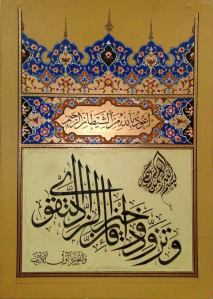 اعوذ بالله من الشیطان الرجیم
بسم الله الرحمن الرحیم
وتزودوا فان خیر الزاد التقوی